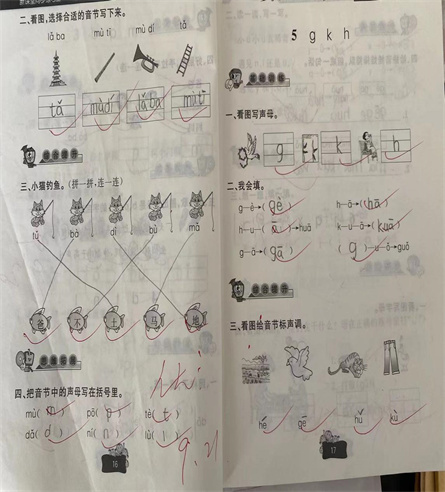 二、看图,选择合适的音节写下来。
lǎ ba mù tī mù dí tǎ
tǎ mù dí lǎ ba mù tī
三、小猫钓鱼。(拼一拼,连一连)
tǔ bà dī bù mā
爸 不 土 马
四、把音节中的声母写在括号里。
mù(m) pō(p) tè(t)
dā(d) ní(n) lù(l)
9.21
16
5 g k h
一、看图写声母。
g k h
二、我会填。
g-ē→(gē) h-ā→(hā)
h-u-(ā)→huā k-u-ā→(kuā)
g-ā→(gā) (g)-u-ō→guō
三、看图给音节标声调。
hé gē hǔ kù
17